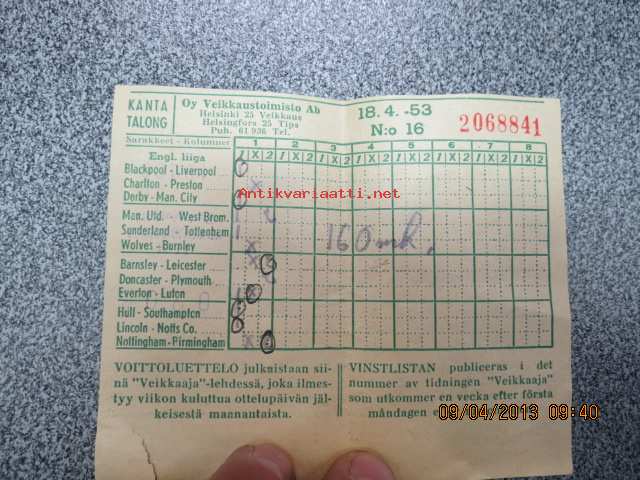 KANTA TALONG
Oy Veikkaustoimisto Ab
Helsinki 25 Veikkaus
Helsingfors 25 Tips
Puh. 61 936 Tel.
18. 4. -53
N:o 16
2068841
Sarakkeet - Kolumner 1 2 3 4 5 6 7 8
Engl. liiga 1 X 2 1 X 2 1 X 2 1 X 2 1 X 2 1 X 2 1 X 2 1 X 2
Blackpool - Liverpool
Charlton - Preston x
Derby - Man. City
Antikvariaatti.net
Man. Utd. - West Brom.
Sunderland - Tottenham 1
Wolves - Burnley x
160 mk.
Barnsley - Leicester x
Doncaster - Plymouth
Everton - Luton x
Hull - Southampton
Lincoln - Notts Co.
Nottingham - Birmingham x
VOITTOLUETTELO julkaistaan sii-
nä "Veikkaaja"-lehdessä, joka ilmes-
tyy viikon kuluttua ottelupäivän jäl-
keisestä maanantaista.
VINSTLISTAN publiceras i det
nummer av tidningen "Veikkaaja"
som utkommer en vecka efter första
måndagen e
09/04/2013 09:40